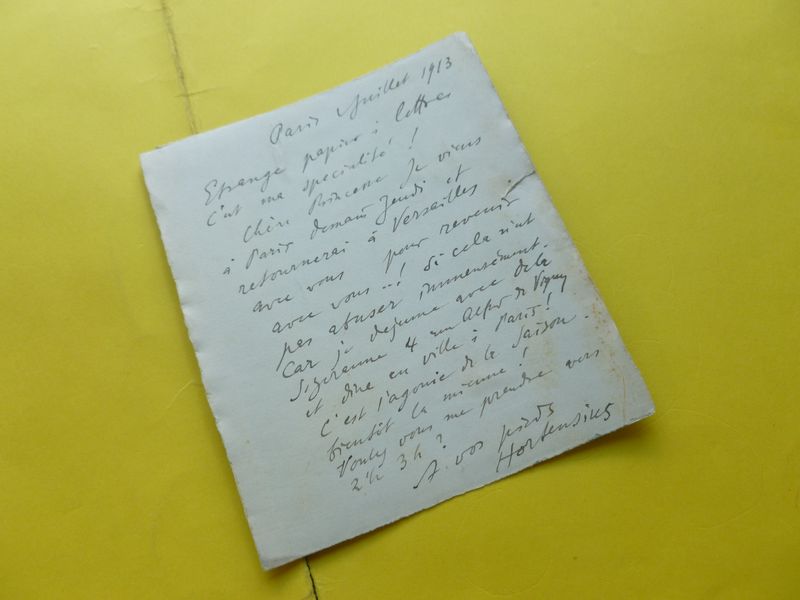 Paris Juillet 1913
Etrange papier à lettres
C'est ma specialité !
Chère Princesse Je viens
à Paris demain Jeudi et
retournerai à Versailles
avec vous pour revenir
avec vous...! Si cela n'est
pas abuser immensément.
Car je dejeune avec de la
Sizeranne 4 rue Alfred de Vigny
et dîne en ville à Paris !
C'est l'agonie de la Saison.
bientôt la mienne !
Voulez vous me prendre vers
2h 3h ?
A vos pieds
Hortensius